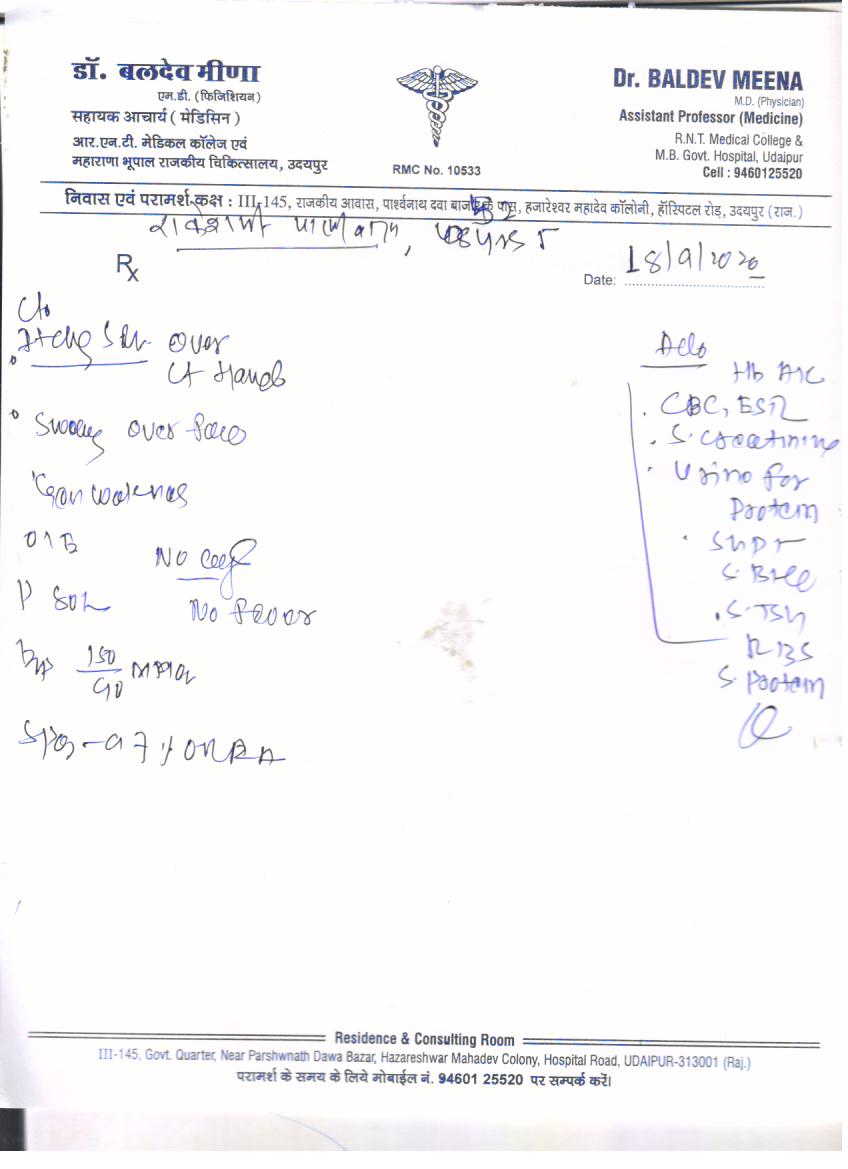 डॉ. बलदेव मीणा
एम.डी. (फिजिशियन)
सहायक आचार्य ( मेडिसिन )
आर.एन.टी. मेडिकल कॉलेज एवं
महाराणा भूपाल राजकीय चिकित्सालय, उदयपुर
RMC No. 10533
Dr. BALDEV MEENA
M.D. (Physician)
Assistant Professor (Medicine)
R.N.T. Medical College &
M.B. Govt. Hospital, Udaipur
Cell : 9460125520
निवास एवं परामर्श कक्ष : III-145, राजकीय आवास, पार्श्वनाथ दवा बाजार के पास, हजारेश्वर महादेव कॉलोनी, हॉस्पिटल रोड़, उदयपुर (राज.)
Rx
Date: 18/9/2020
C/o
Over
Hands
Over face
No fever
BP 150/90 mmHg
HbA1C
CBC, ESR
S. Creatinine
Urine for
Protein
S. TSH
RBS
S. Protein
Residence & Consulting Room
III-145, Govt. Quarter, Near Parshwnath Dawa Bazar, Hazareshwar Mahadev Colony, Hospital Road, UDAIPUR-313001 (Raj.)
परामर्श के समय के लिये मोबाईल नं. 94601 25520 पर सम्पर्क करें।